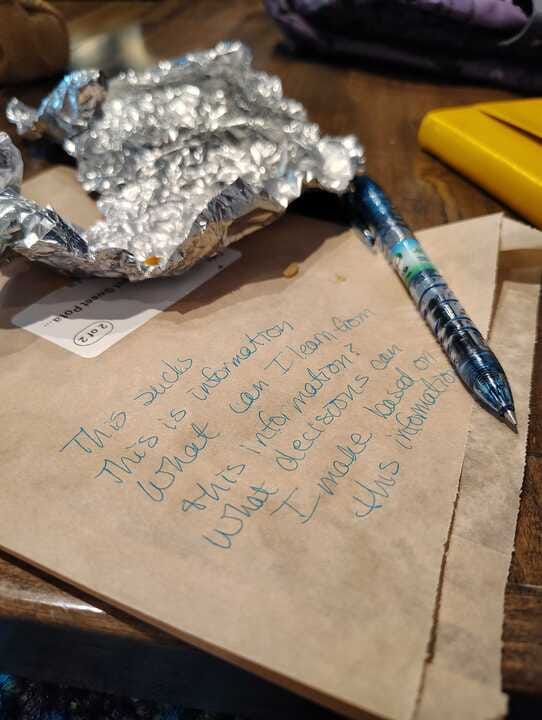 Sweet Pota...
2 of 2
This sucks
This is information
What can I learn from
this information?
What decisions can
I make based on
this information